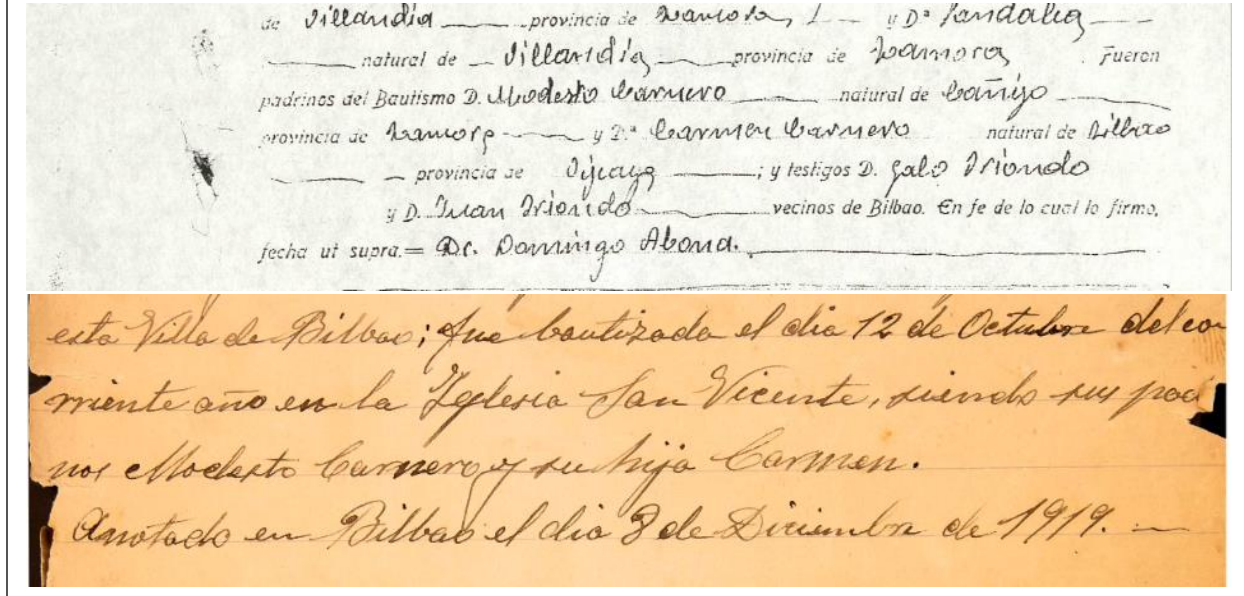 de Villardiga provincia de Zamora, y D.ª Sandalia
natural de Villardiga provincia de Zamora. Fueron
padrinos del Bautismo D. Modesto Carnero natural de Cañizo
provincia de Zamora y D.ª Carmen Carnero natural de Bilbao
provincia de Vizcaya; y testigos D. Galo Iriondo
y D. Juan Iriondo vecinos de Bilbao. En fe de lo cual lo firmo,
fecha ut supra.= Dr. Domingo Abona.
esta Villa de Bilbao; fue bautizada el dia 12 de Octubre del co
rriente año en la Iglesia San Vicente, siendo sus pad
nos Modesto Carnero y su hija Carmen.
Anotado en Bilbao el dia 3 de Diciembre de 1919. —